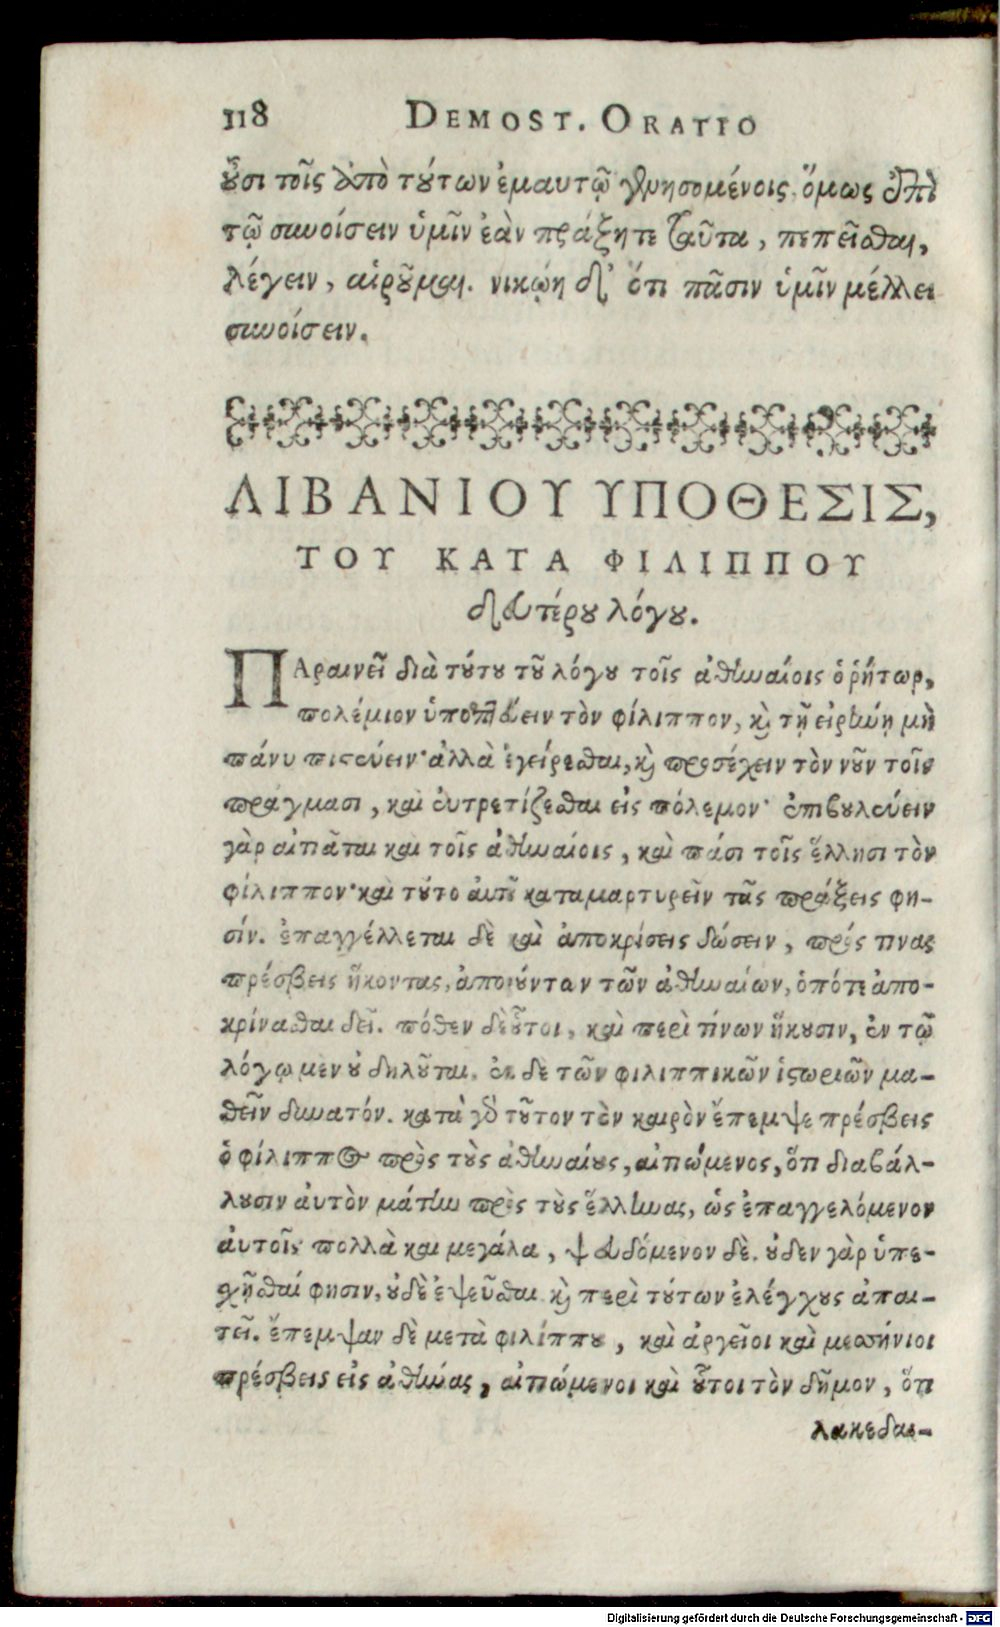 118 DEMOST. ORATIO
οὖσι τοῖς ἀπὸ τούτων ἐμαυτῷ γενησομένοις, ὅμως ἐπὶ
τῷ συνοίσειν ὑμῖν ἐὰν πράξητε ταῦτα, πεπεῖσθαι,
λέγειν, αἱροῦμαι. νικῴη δ' ὅτι πᾶσιν ὑμῖν μέλλει
συνοίσειν.
ΛΙΒΑΝΙΟΥ ΥΠΟΘΕΣΙΣ,
ΤΟΥ ΚΑΤΑ ΦΙΛΙΠΠΟΥ
δευτέρου λόγου.
ΠΑραινεῖ διὰ τούτου τοῦ λόγου τοῖς ἀθηναίοις ὁ ῥήτωρ,
πολέμιον ὑποπτεύειν τὸν φίλιππον, καὶ τῇ εἰρήνῃ μὴ
πάνυ πιστεύειν· ἀλλὰ ἐγείρεσθαι, καὶ προσέχειν τὸν νοῦν τοῖς
πράγμασι, καὶ εὐτρεπίζεσθαι εἰς πόλεμον· ἐπιβουλεύειν
γὰρ αἰτιᾶται καὶ τοῖς ἀθηναίοις, καὶ πάσι τοῖς ἕλλησι τὸν
φίλιππον· καὶ τοῦτο αὐτοῦ καταμαρτυρεῖν τὰς πράξεις φη-
σίν. ἐπαγγέλλεται δὲ καὶ ἀποκρίσεις δώσειν, πρός τινας
πρέσβεις ἥκοντας, ἀπορούντων τῶν ἀθηναίων, ὁπότε ἀπο-
κρίνασθαι δεῖ. πόθεν δὲ οὗτοι, καὶ περὶ τίνων ἥκουσιν, ἐν τῷ
λόγῳ μεν οὐ δηλοῦται, ἐκ δε τῶν φιλιππικῶν ἱστοριῶν μα-
θεῖν δυνατόν. κατὰ γὰρ τοῦτον τὸν καιρὸν ἔπεμψε πρέσβεις
ὁ φίλιππος πρὸς τοὺς ἀθηναίους, αἰτιώμενος, ὅτι διαβάλ-
λουσιν αὐτὸν μάτην πρὸς τοὺς ἕλληνας, ὡς ἐπαγγελόμενον
αὐτοῖς πολλὰ καὶ μεγάλα, ψευδόμενον δέ. οὐδεν γὰρ ὑπε-
χῆσθαί φησιν, οὐδὲ ἐψεῦσθαι καὶ περὶ τούτων ἐλέγχους ἀπαι-
τεῖ. ἔπεμψαν δὲ μετὰ φιλίππου, καὶ ἀργεῖοι καὶ μεσσήνιοι
πρέσβεις εἰς ἀθήνας, αἰτιώμενοι καὶ οὗτοι τὸν δῆμον, ὅτι
λακεδαι-
Digitalisierung gefördert durch die Deutsche Forschungsgemeinschaft - DFG